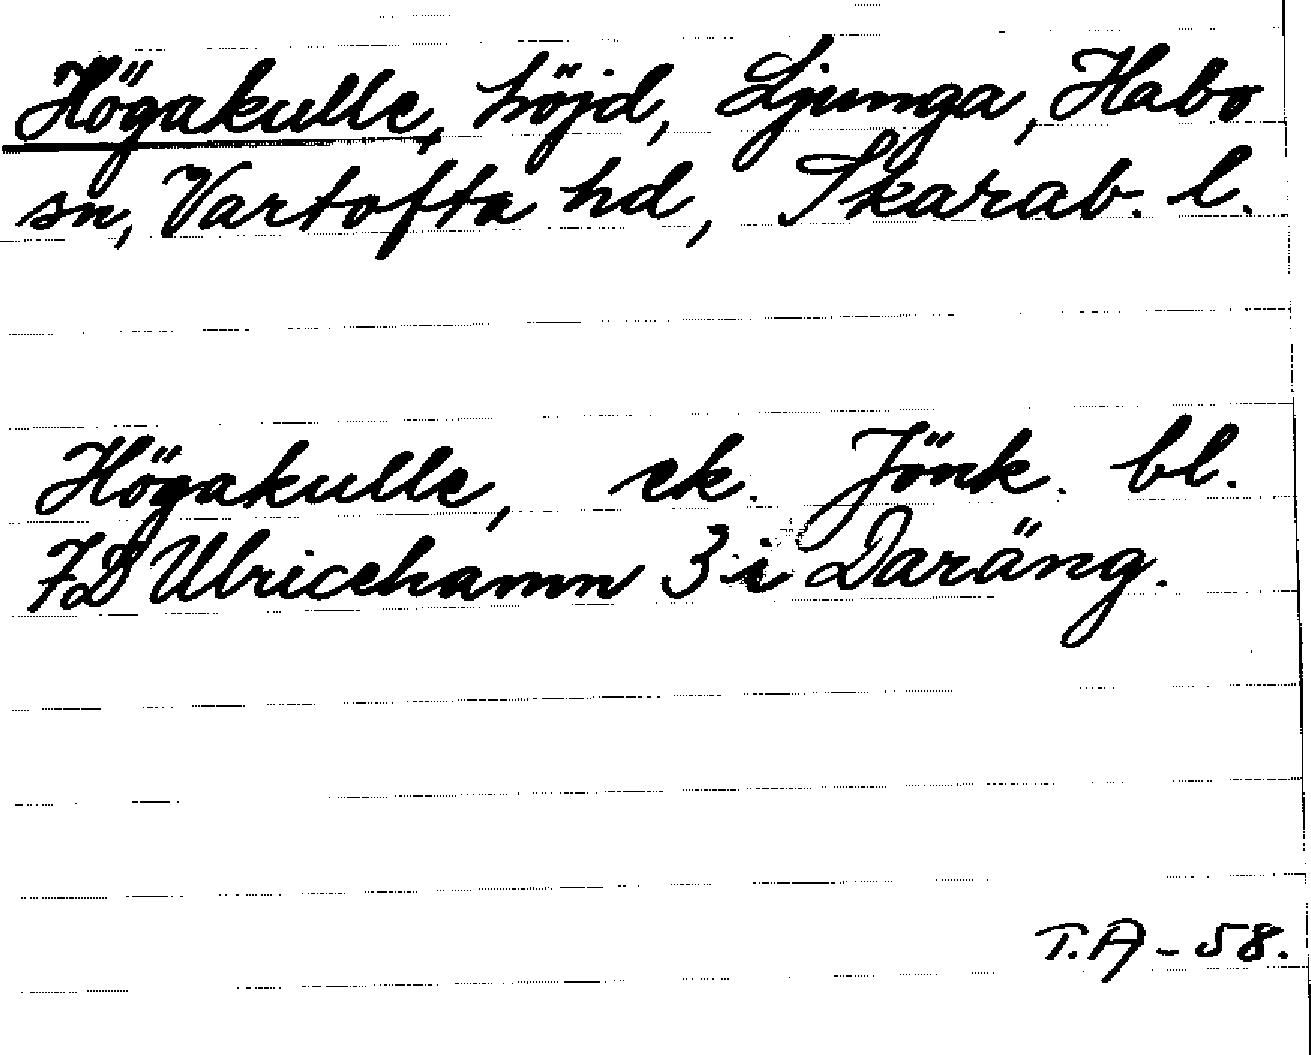 Högakulle, höjd, Ljunga, Habo
sn, Vartofta hd, Skarab. l.
Högakulle, ek. Jönk. bl.
7D Ulricehamn 3 i Daräng.
T.A - 58.